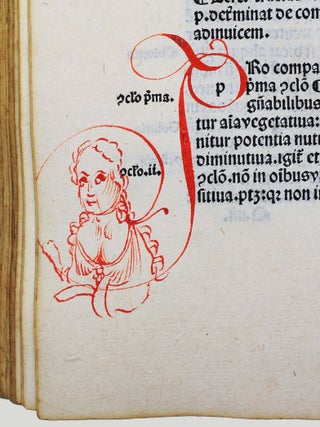 p.det̄minat de com
adinuicem.
ꝯclo p̄ma.
p
Ro compa
p̄ma ꝯclō
gn̄abilibus
tur aīa vegetatiua:
nitur potentia nutr
diminutiua. igit̄ et
ꝯclo.ii.
ꝯclō. nō in oībus,
sitiua. ptꝫ: qr non in